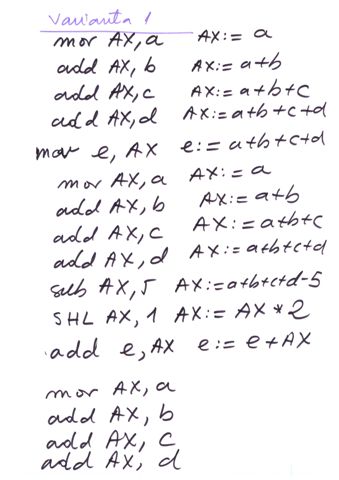 Varianta 1
mov AX, a AX:= a
add AX, b AX:= a+b
add AX, c AX:= a+b+c
add AX, d AX:= a+b+c+d
mov e, AX e:= a+b+c+d
mov AX, a AX:= a
add AX, b AX:= a+b
add AX, c AX:= a+b+c
add AX, d AX:= a+b+c+d
sub AX, 5 AX:= a+b+c+d-5
SHL AX, 1 AX:= AX * 2
add e, AX e:= e+AX
mov AX, a
add AX, b
add AX, c
add AX, d